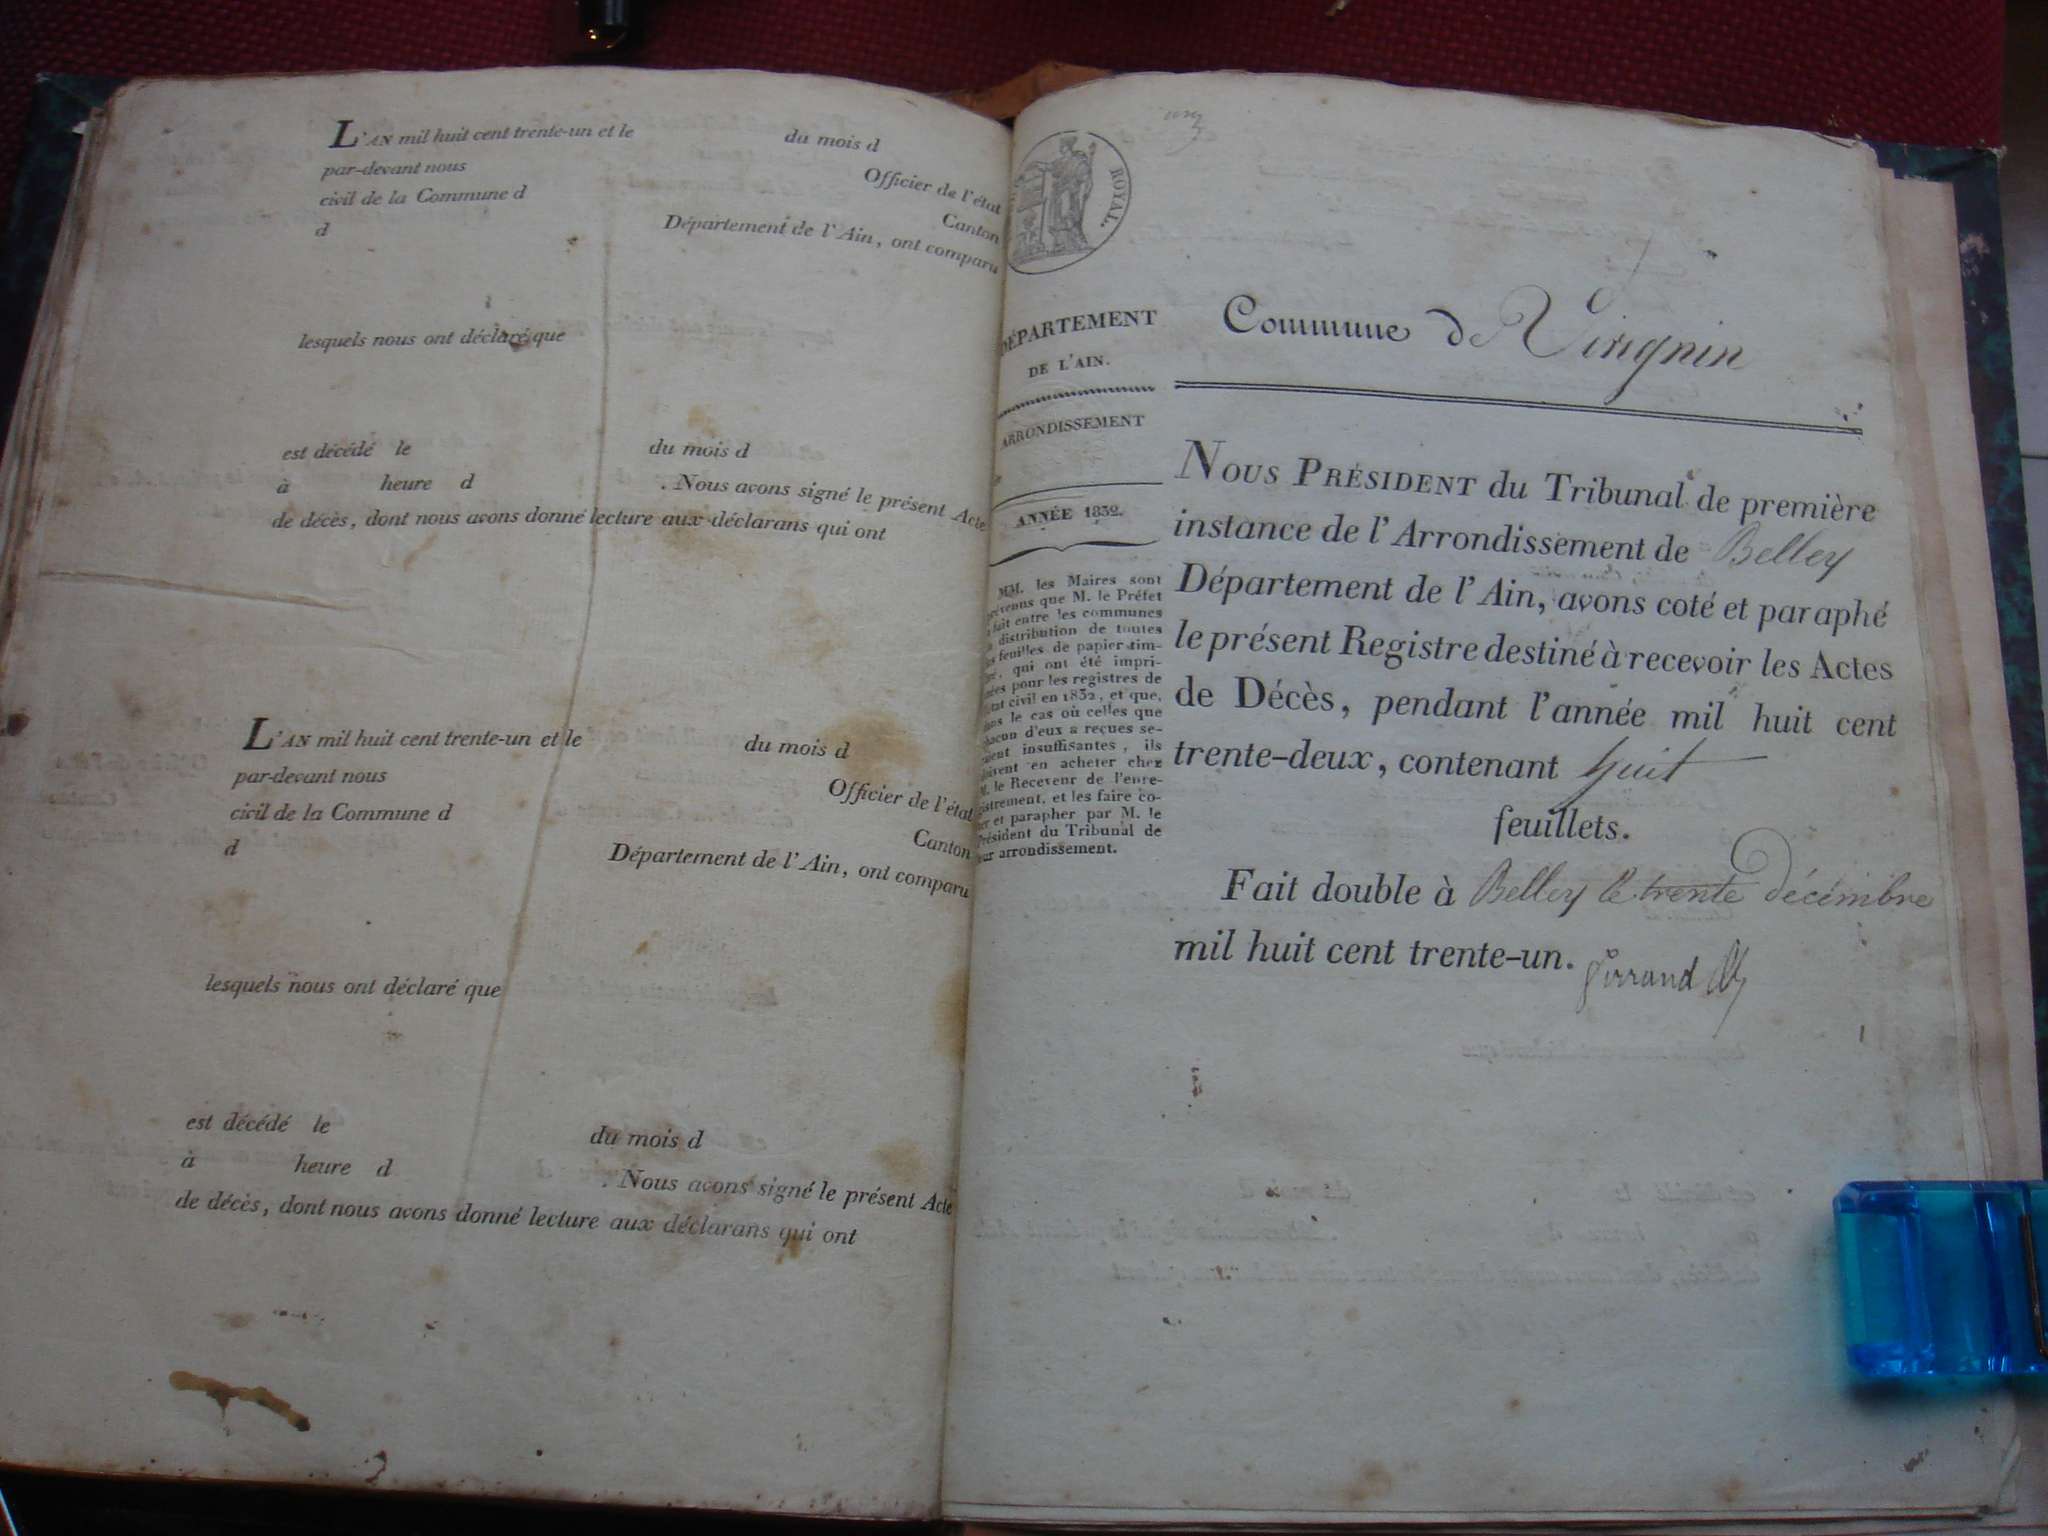 L'AN mil huit cent trente-un et le du mois d
par-devant nous Officier de l'état
civil de la Commune d Canton
d Département de l'Ain, ont comparu
lesquels nous ont déclaré que
est décédé le du mois d
à heure d . Nous avons signé le présent Acte
de décès, dont nous avons donné lecture aux déclarans qui ont
L'AN mil huit cent trente-un et le du mois d
par-devant nous Officier de l'état
civil de la Commune d Canton
d Département de l'Ain, ont comparu
lesquels nous ont déclaré que
est décédé le du mois d
à heure d . Nous avons signé le présent Acte
de décès, dont nous avons donné lecture aux déclarans qui ont
ROYAL.
DÉPARTEMENT
DE L'AIN.
ARRONDISSEMENT
ANNÉE 1832.
MM. les Maires sont
prévenus que M. le Préfet
a fait entre les communes
la distribution de toutes
les feuilles de papier tim-
bré, qui ont été impri-
mées pour les registres de
l'état civil en 1832, et que,
dans le cas où celles que
chacun d'eux a reçues se-
raient insuffisantes, ils
doivent en acheter chez
M. le Receveur de l'enre-
gistrement, et les faire co-
ter et parapher par M. le
Président du Tribunal de
leur arrondissement.
Commune de Virignin
NOUS PRÉSIDENT du Tribunal de première
instance de l'Arrondissement de Belley
Département de l'Ain, avons coté et paraphé
le présent Registre destiné à recevoir les Actes
de Décès, pendant l'année mil huit cent
trente-deux, contenant huit
feuillets.
Fait double à Belley le trente décembre
mil huit cent trente-un.